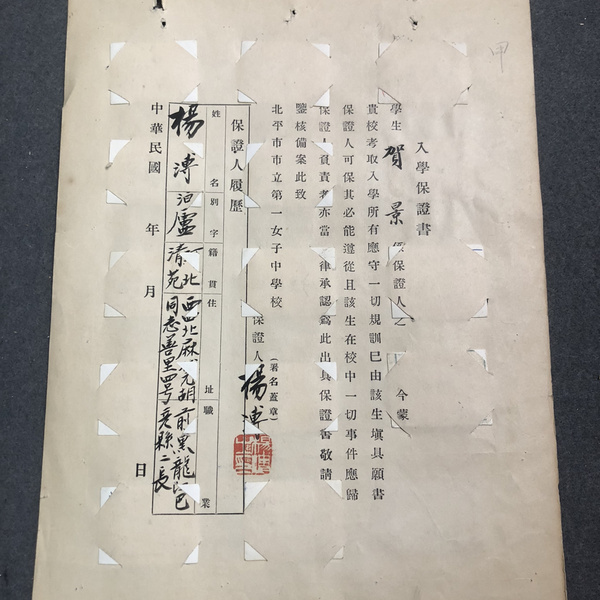 甲
入學保證書
學生賀景係保證人之 今蒙
貴校考取入學所有應守一切規訓已由該生填具願書
保證人可保其必能遵從且該生在校中一切事件應歸
保證人負責者亦當一律承認爲此出具保證書敬請
鑒核備案此致
北平市市立第一女子中學校
保證人 楊溥 (署名蓋章)
保證人履歷
姓名 別字 籍貫 住址 職業
楊溥 泊廬 河北清苑 西四北 胡同志善里四號 前黑龍江 縣縣長
中華民國 年 月 日